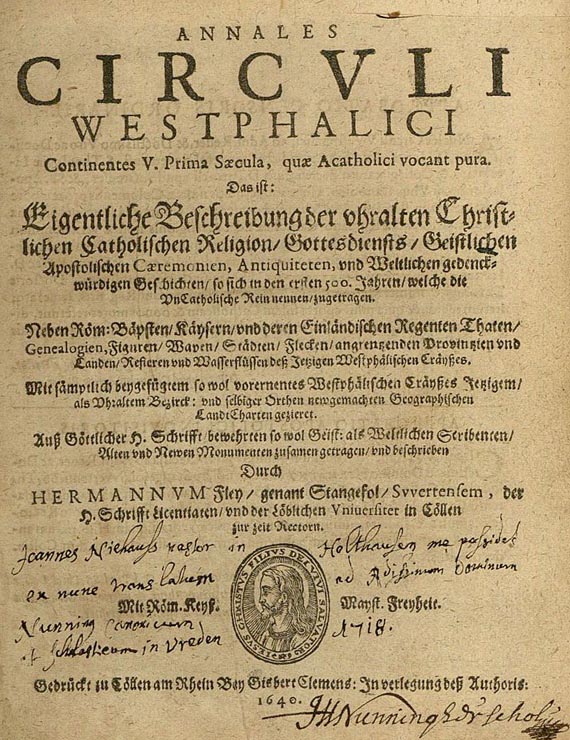 ANNALES
CIRCVLI
WESTPHALICI
Continentes V. Prima Sæcula, quæ Acatholici vocant pura.
Das ist:
Eigentliche Beschreibung der vhralten Christ-
lichen Catholischen Religion/ Gottesdiensts/ Geistlichen
Apostolischen Cæremonien, Antiquiteten, vnd Weltlichen gedenck-
würdigen Geschichten/ so sich in den ersten 500. Jahren/ welche die
VnCatholische Rein nennen/ zugetragen.
Neben Röm: Bäpsten/ Käysern/ vnd deren Einländischen Regenten Thaten/
Genealogien, Figuren/ Wapen/ Städten/ Flecken/ angrentzenden Provintzien vnd
Landen/ Refieren vnd Wasserflüssen deß Jetzigen Westphälischen Cräyßes.
Mit sämptlich beygefügtem so wol vorernentes Westphälischen Cräyßes Jetzigem/
als Vhraltem Bezirck: vnd selbiger Orthen newgemachten Geographischen
LandtCharten gezieret.
Auß Göttlicher H. Schrifft/ bewehrten so wol Geist: als Weltlichen Scribenten/
Alten vnd Newen Monumenten zusamen getragen/ vnd beschrieben
Durch
HERMANNVM Fley/ genant Stangefol/ Svvertensem, der
H. Schrifft Licentiaten/ vnd der Löblichen Vniversitet in Cöllen
zur zeit Rectorn.
Joannes Niehauss pastor in Holthausen me possidet
ex nunc translatum ad Dominum
Mit Röm. Keyß. Mayst. Freyheit.
IESVS CHRISTVS FILIVS DEI VIVI SALVATOR
Nunning Canonicum 1718.
et Scholasticum in Vreden
Gedrückt zu Cöllen am Rhein Bey Gisbert Clemens: In verlegung deß Authoris:
1640.
JH Nunning